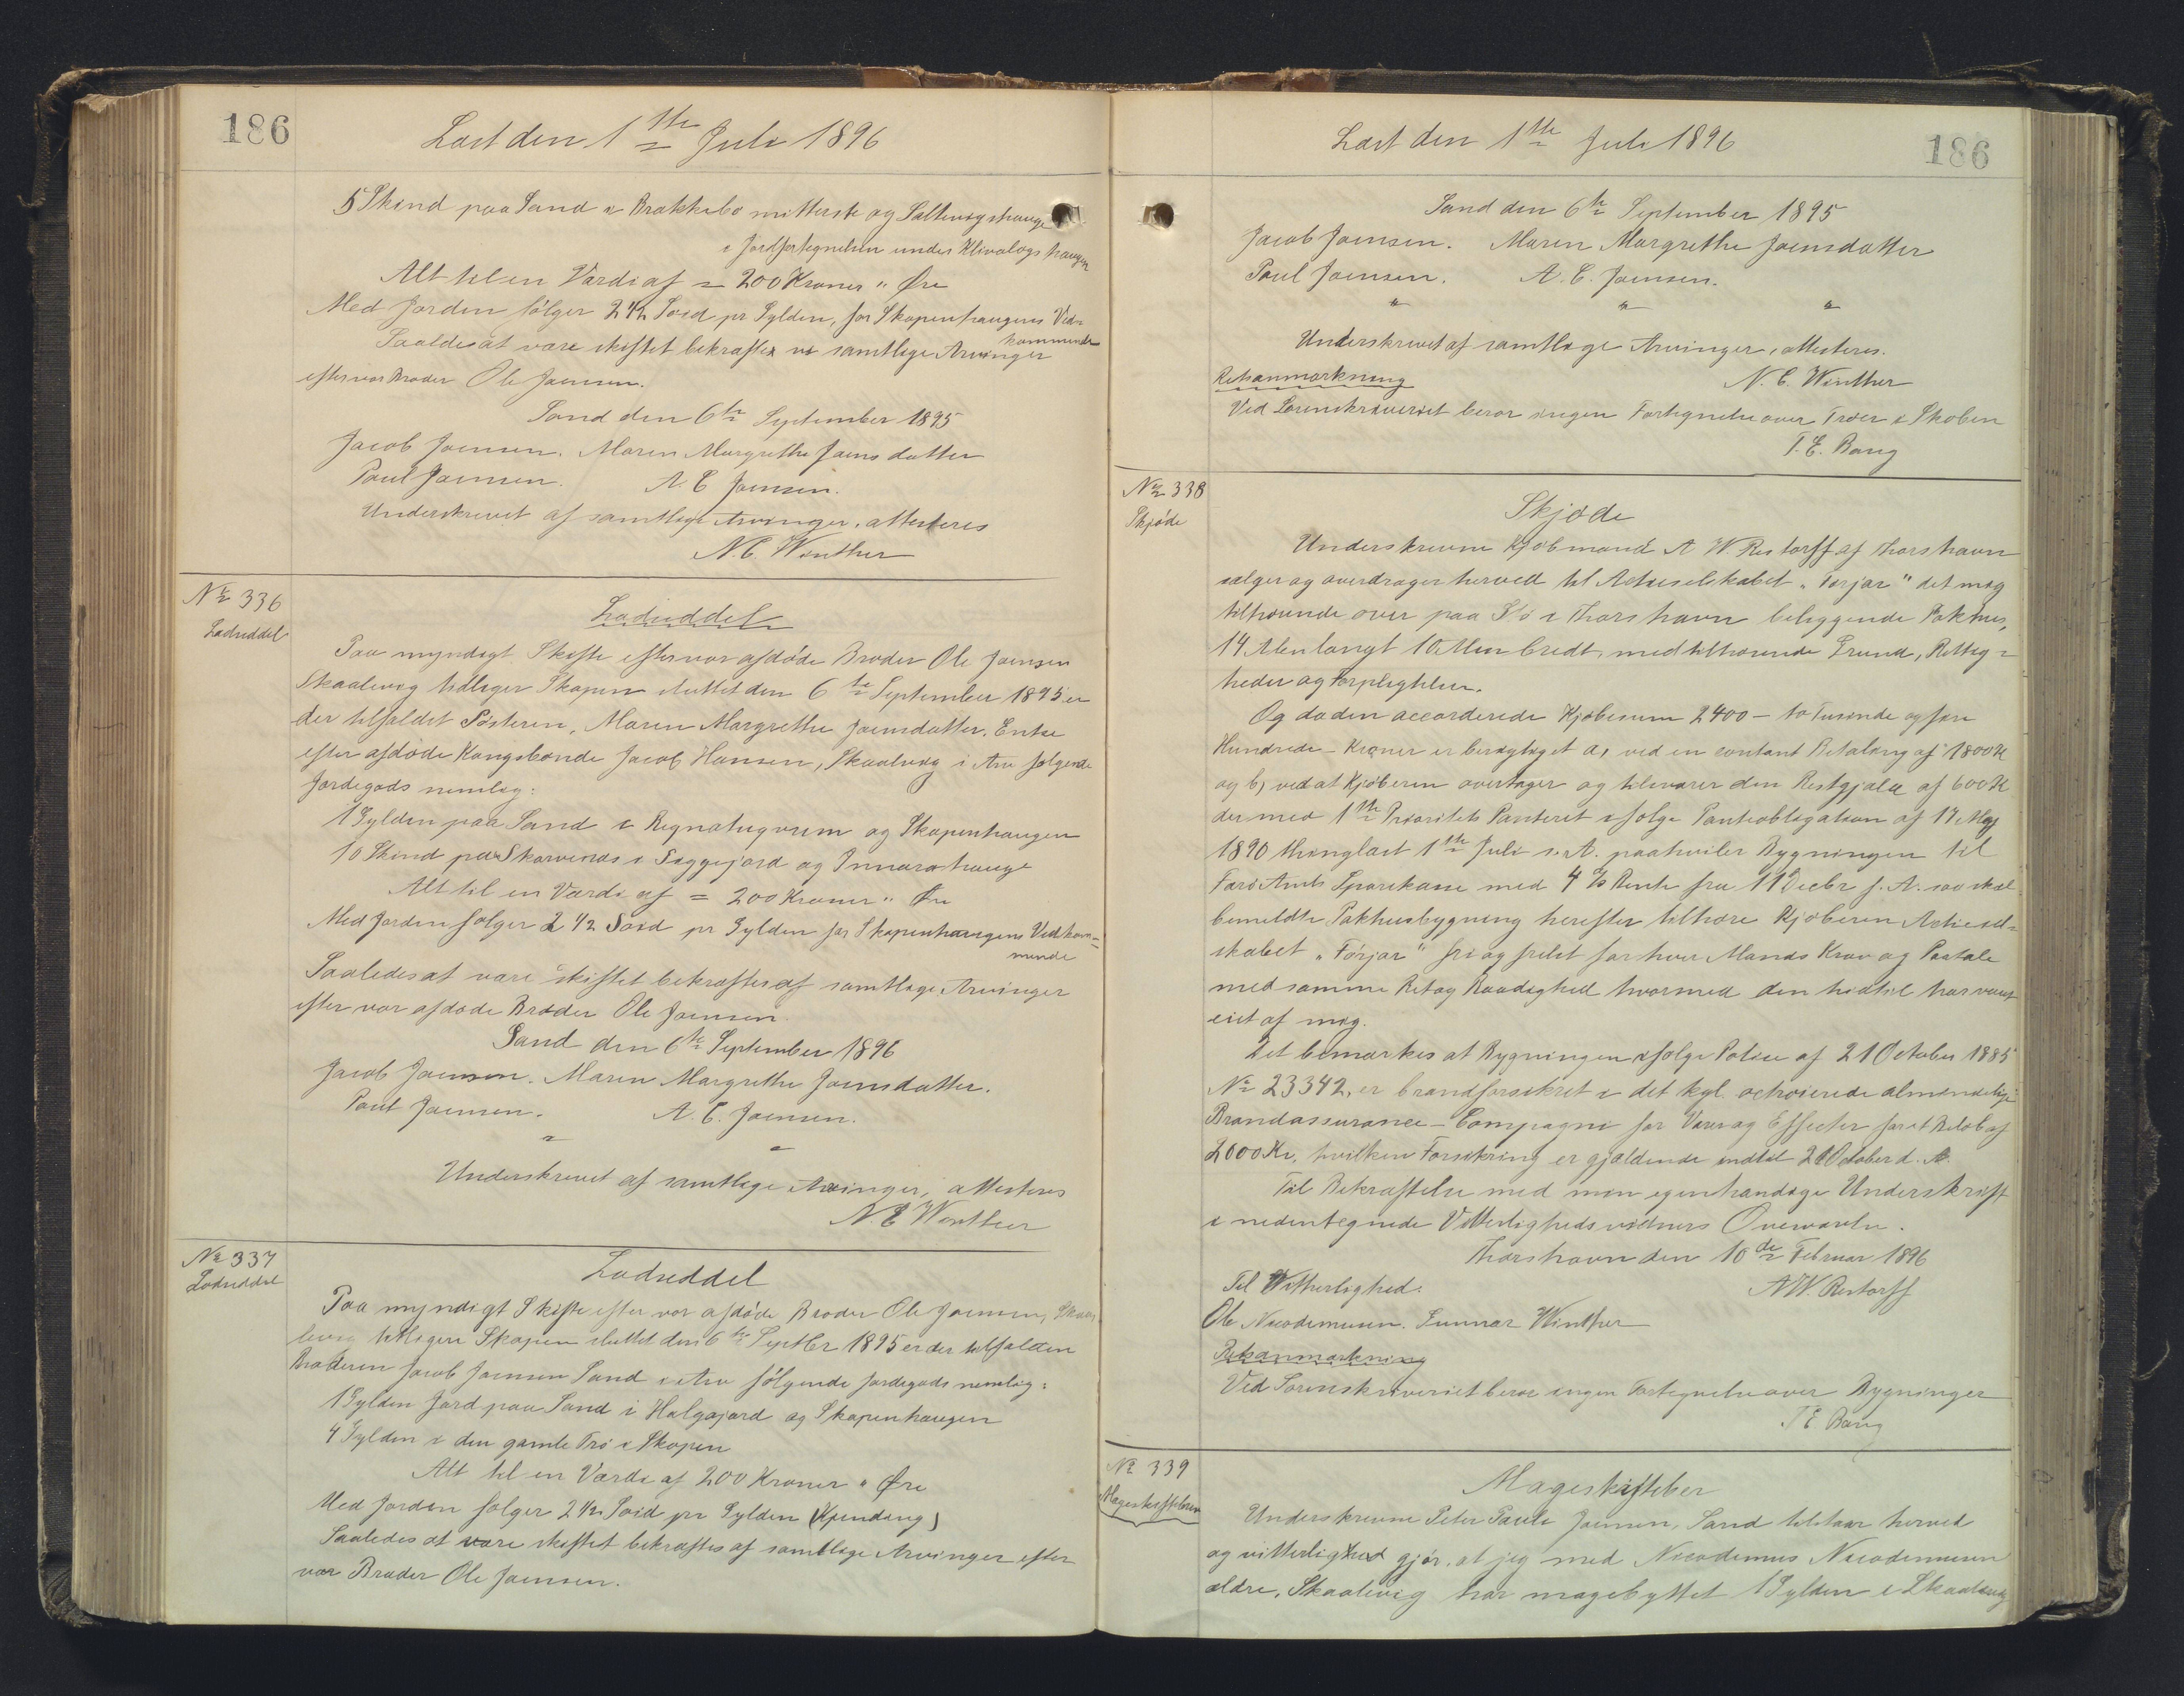 186
Læst den 1ste Juli 1896
5 Skind paa Sand i Brekkebø mitterste og Saltevigshauge
i Jordfortegnelsen under Klivalogshaugen
Alt til en Værdi af = 200 Kroner " Øre
Med Jorden følger 2 1/2 Soid pr Gylden, for Skopenhaugens Ved-
kommende
Saaledes at være skiftet bekræfter vi samtlige Arvinger
efter vor Broder Ole Joensen.
Sand den 6te September 1895
Jacob Joensen. Maren Margrethe Joensdatter
Paul Joensen. A. C Joensen.
Underskrevet af samtlige Arvinger, attesteres
N. C. Winther
No 336
Lodseddel
Lodseddel
Paa myndigt Skifte efter vor afdøde Broder Ole Joensen
Skaalevig tidligere Skopen sluttet den 6te September 1895 er
der tilfaldet Søsteren, Maren Margrethe Joensdatter, Enke
efter afdøde Kongsbonde Jacob Hansen, Skaalevig i Arv følgende
Jordegods nemlig:
1 Gylden paa Sand i Regnatugvum og Skopenhaugen
10 Skind paa Skarvenes i Siggejord og Innarahauge
Alt til en Værdi af = 200 Kroner " Øre
Med Jorden følger 2 1/2 Soid pr Gylden for Skopenhaugens Vedkom-
mende
Saaledes at være skiftet bekræftes af samtlige Arvinger
efter vor afdøde Broder Ole Joensen.
Sand den 6te September 1896
Jacob Joensen. Maren Margrethe Joensdatter.
Paul Joensen. A. C. Joensen.
" "
Underskrevet af samtlige Arvinger, attesteres
N. C Winther
No 337
Lodseddel
Lodseddel
Paa myndigt Skifte efter vor afdøde Broder Ole Joensen, Skaa-
levig tidligere Skopen sluttet den 6te Septbr 1895 er der tilfalden
Broderen Jacob Joensen Sand i Arv følgende Jordegods nemlig:
1 Gylden Jord paa Sand i Halgajord og Skopenhaugen
4 Gylden i den gamle Trø i Skopen
Alt til en Værdi af 200 Kroner " Øre
Med Jorden følger 2 1/2 Soid pr Gylden
Saaledes at være skiftet bekræftes af samtlige Arvinger efter
vor Broder Ole Joensen.
Læst den 1ste Juli 1896
186
Sand den 6te September 1895
Jacob Joensen. Maren Margrethe Joensdatter
Paul Joensen. A. C. Joensen.
" " "
Underskrevet af samtlige Arvinger, attesteres.
N. C. Winther
Retsanmærkning
Ved Sorenskriveriet beror ingen Fortegnelse over Trøer i Skoben
T. E. Bang
No 338
Skjøde
Skjøde
Underskrevne Kjøbmand A W. Restorff af Thorshavn
sælger og overdrager herved til Actieselskabet "Førjar" det mig
tilhørende over paa Stø i Thorshavn beliggende Pakhus,
14 Alen langt 10 Alen bredt, med tilhørende Grund, Rettig-
heder og Forpligtelser.
Og da den accorderede Kjøbesum 2400 - to Tusinde og fire
Hundrede - Kroner er berigtiget a, ved en contant Betaling af 1800 K
og b, ved at Kjøberen overtager og tilsvarer den Restgjæld af 600 K
der med 1ste Prioritets Panteret i følge Panteobligation af 17 Maj
1890 thinglæst 1ste Juli s. A. paahviler Bygningen til
Færø Amts Sparekasse med 4 % Rente fra 11 Decbr f. A. saa skal
bemeldte Pakhusbygning herefter tilhøre Kjøberen Actiesel-
skabet "Førjar" fri og frelst for hver Mands Krav og Paatale
med samme Ret og Raadighed hvormed den hidtil har været
eiet af mig.
Det bemærkes at Bygningen ifølge Police af 21 October 1885
No 23342, er brandforsikret i det kgl. octroierede almindelige
Brandassurance-Compagni for Varer og Effecter for et Beløb af
2000 Kr, hvilken Forsikring er gjældende indtil 21 October d. A.
Til Bekræftelse med min egenhændige Underskrift
i nedentegnede Vitterlighedsvidners Overværelse.
Thorshavn den 10de Februar 1896
Til Vitterlighed. AW. Restorff
Ole Nicodemusen. Gunnar Winther
Retsanmærkning
Ved Sorenskriveriet beror ingen Fortegnelse over Bygninger
T E Bang
No 339
Mageskiftebrev
Mageskiftebrev
Underskrevne Peter Paule Joensen, Sand tilstaar herved
og vitterlighed gjør, at jeg med Nicodemus Nicodemusen
ældre, Skaalevig har magebyttet 1 Gylden i Skaalevig